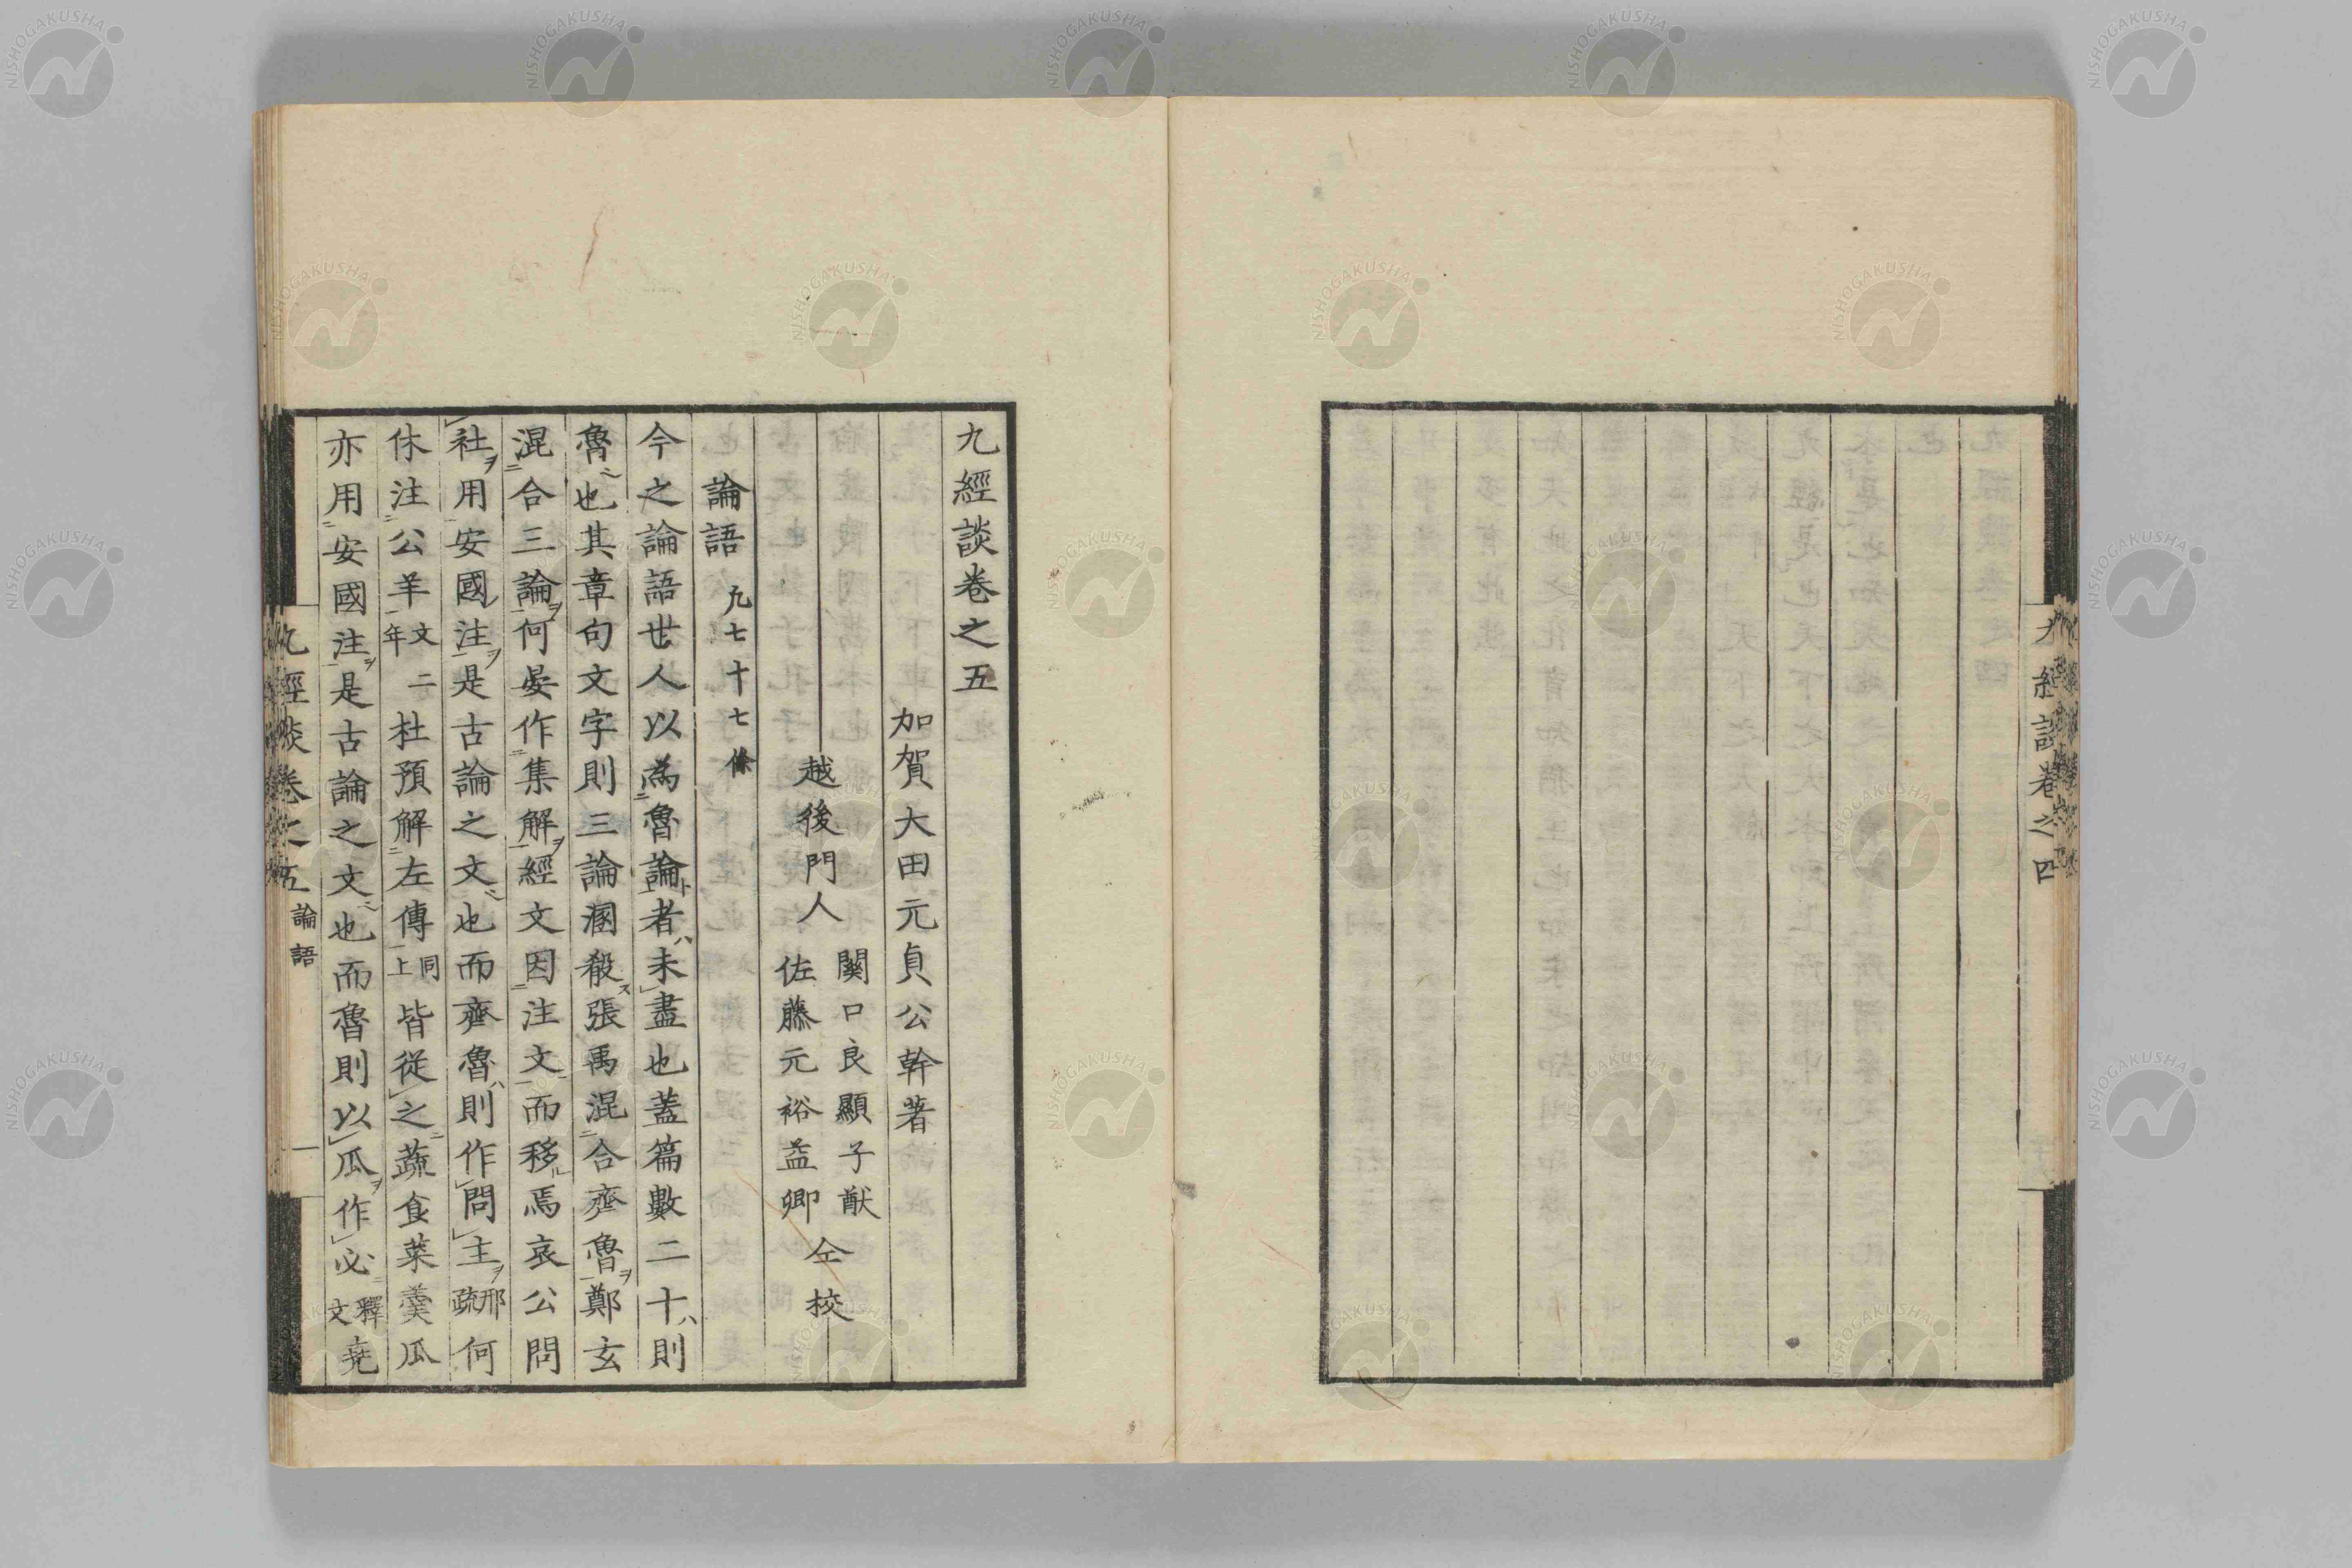 九經談卷之四
九經談卷之五
加賀大田元貞公幹著
關口良顯子猷
越後門人 仝校
佐藤元裕益卿
論語 凡七十七條
今之論語世人以為魯論者未盡也蓋篇數二十則
魯也其章句文字則三論溷殽張禹混合齊魯鄭玄
混合三論何晏作集解經文因注文而移焉哀公問
社用安國注是古論之文也而齊魯則作問主邢疏何
休注公羊文二年杜預解左傳同上皆從之蔬食菜羹瓜
亦用安國注是古論之文也而魯則以瓜作必釋文堯
九經談卷之五 論語 一
NISHOGAKUSHA